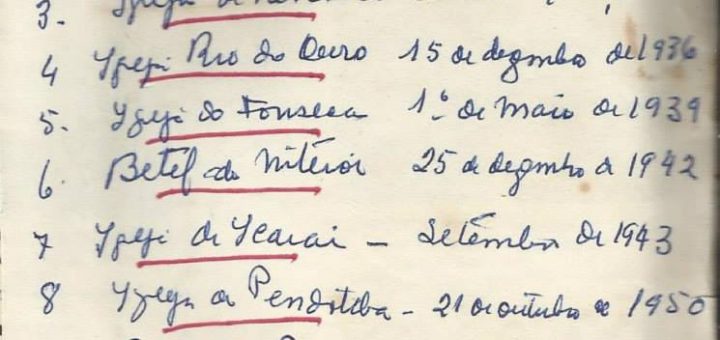 3. Igreja de
4 Igreja Rio do Ouro 15 de dezembro de 1936
5. Igreja do Fonseca 1º de Maio de 1939
6. Betel de Niterói 25 de dezembro de 1942
7 Igreja de Icaraí — Setembro de 1943
8 Igreja de Pendotiba - 21 de outubro de 1950